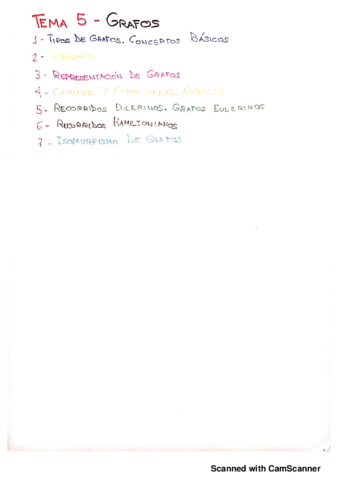 TEMA 5 - GRAFOS
1 - TIPOS DE GRAFOS. CONCEPTOS BÁSICOS
2 -
3 - REPRESENTACIÓN DE GRAFOS
4 - CAMINOS Y
5 - RECORRIDOS EULERINOS. GRAFOS EULERINOS
6 - RECORRIDOS HAMILTONIANOS
7 - ISOMORFISMO DE GRAFOS
Scanned with CamScanner